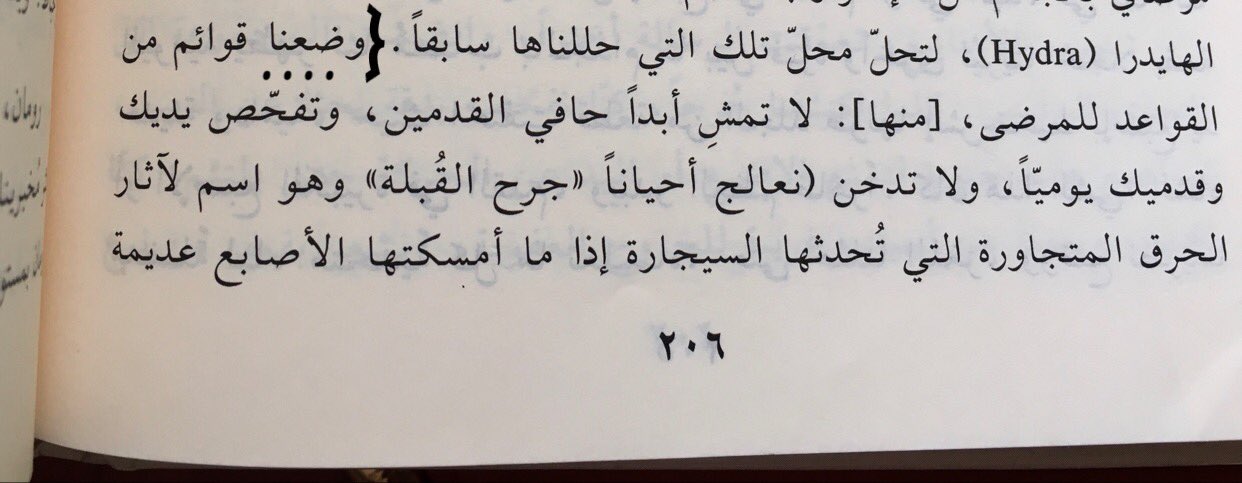 الهايدرا (Hydra)، لتحلّ محلّ تلك التي حللناها سابقاً. {وضعنا قوائم من
القواعد للمرضى، [منها]: لا تمشِ أبداً حافي القدمين، وتفحّص يديك
وقدميك يوميّاً، ولا تدخن (نعالج أحياناً «جرح القُبلة» وهو اسم لآثار
الحرق المتجاورة التي تُحدثها السيجارة إذا ما أمسكتها الأصابع عديمة
٢٠٦
رومان،